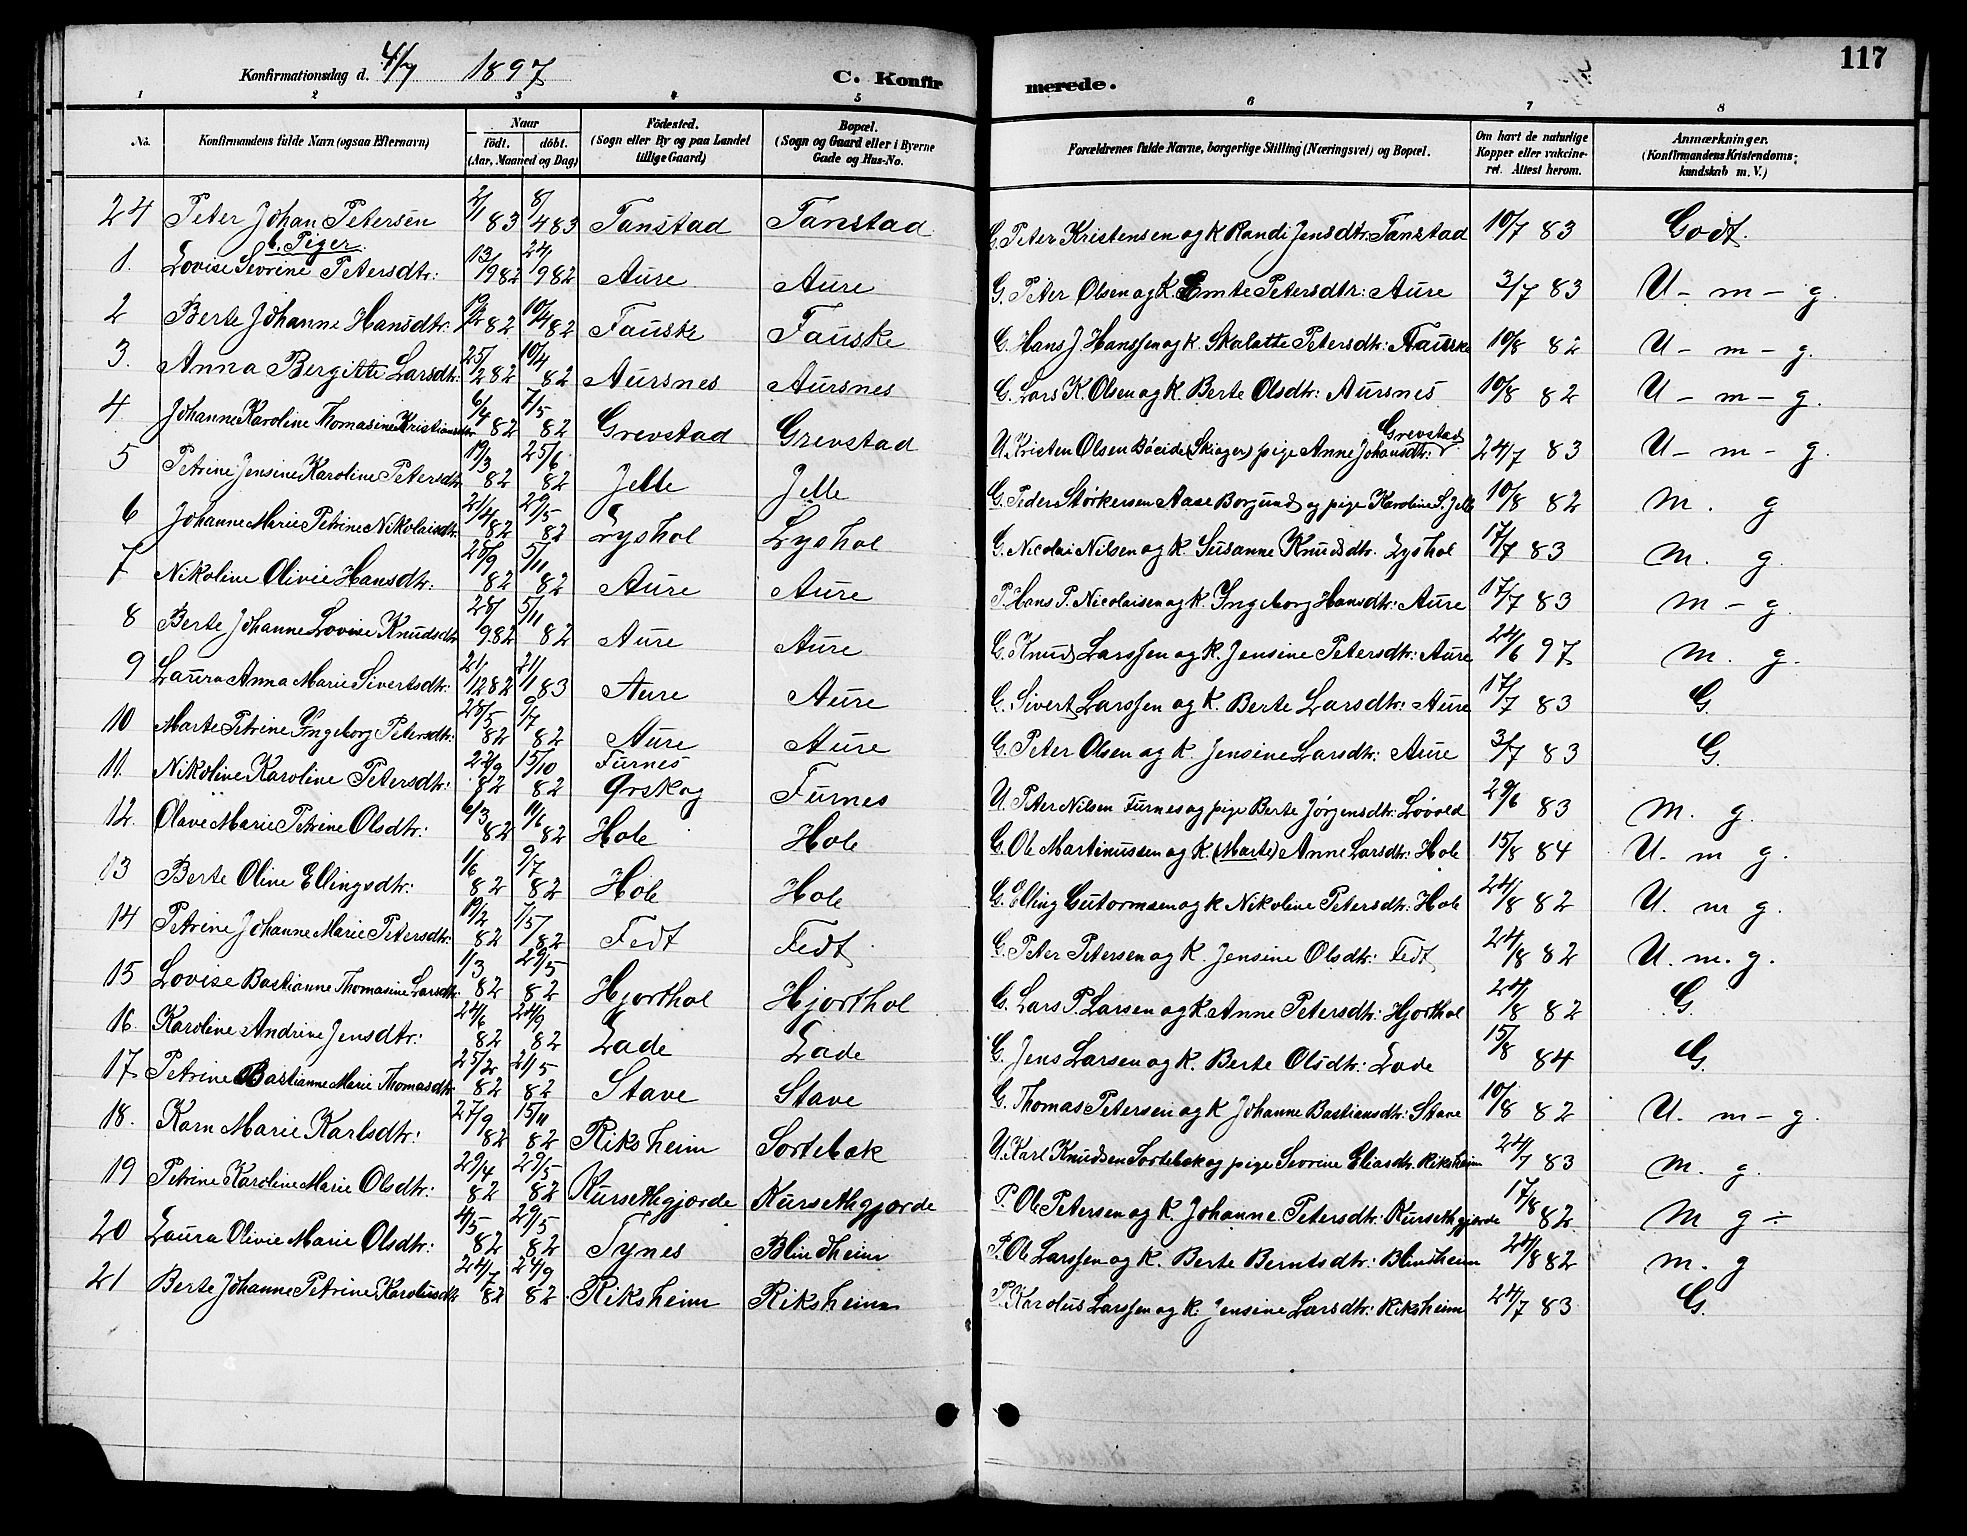 Konfirmationsdag d. 4/7 1897 C. Konfirmerede. 117
1 2 3 4 5 6 7 8
No. Konfirmandens fulde Navn (ogsaa Efternavn) Naar født. døbt. (Aar, Maaned og Dag) Fødested. (Sogn eller By og paa Landet tillige Gaard) Bopæl. (Sogn og Gaard eller i Byerne Gade og Hus-No. Forældrenes fulde Navne, borgerlige Stilling (Næringsvei) og Bopæl. Om havt de naturlige Kopper eller vakcineret. Attest herom. Anmærkninger. (Konfirmandens Kristendomskundskab m. V.)
24 Peter Johan Petersen 2/1 83 8/4 83 Tanstad Tanstad G. Peter Kristensen og K Randi Jensdtr: Tanstad 10/7 83 Godt.
b. Piger.
1. Lovise Sevrine Petersdtr: 13/9 82 24/9 82 Aure Aure G. Peter Olsen og K. Emte Petersdtr: Aure 3/7 83 U - m - g.
2 Berte Johanne Hansdtr: 82 10/4 82 Fauske Fauske G. Hans J. Hanssen og K. Skalatte Petersdtr: Fauske 10/8 82 U - m - g.
3. Anna Bergitte Larsdtr: 25/2 82 10/4 82 Aursnes Aursnes G. Lars K. Olsen og K. Berte Olsdtr: Aursnes 10/8 82 U - m - g.
4 Johanne Karoline Thomasine Kristiansdtr 6/4 82 7/5 82 Grevstad Grevstad U. Kristen Olsen (Skiager) pige Anne Johansdtr: Grevstad 24/7 83 U - m - g.
5 Petrine Jensine Karoline Petersdtr 19/3 82 25/6 82 Jelle Jelle G. Peder Størkersen Aase Borgund og pige Karoline S. Jelle 10/8 82 m. g
6 Johanne Marie Petrine Nikolaisdtr. 21/4 82 29/5 82 Lyshol Lyshol G. Nicolai Nilsen og K. Susanne Knudsdtr. Lyshol 17/7 83 m. g.
7 Nikoline Olivie Hansdtr: 28/9 82 5/11 82 Aure Aure P. Hans P. Nicolaisen og K. Ingeborg Hansdtr: Aure 17/7 83 m - g.
8 Berte Johanne Lovise Knudsdtr 28/9 82 5/11 82 Aure Aure G. Knud Larssen og K. Jensine Petersdtr: Aure 24/6 97 m. g.
9 Laura Anna Marie Sivertsdtr: 21/12 82 21/1 83 Aure Aure G. Sivert Larssen og K. Berte Larsdtr: Aure 17/7 83 G.
10 Marte Petrine Yngeborg Petersdtr: 28/5 82 9/7 82 Aure Aure G. Peter Olsen og K Jensine Larsdtr: Aure 3/7 83 G.
11. Nikoline Karoline Petersdtr: 22/9 82 15/10 82 Furnes Ørskog Furnes U. Peter Nilsen Furnes og pige Berte Jørgensdtr: Løvold 29/6 83 m. g.
12. Olave Marie Petrine Olsdtr: 6/3 82 11/6 82 Hole Hole G. Ole Martinussen og K. (Marte) Anne Larsdtr: Hole 15/8 84 U. m g.
13 Berte Oline Ellingsdtr: 1/6 82 9/7 82 Hole Hole G. Elling Gutormsen og K Nikoline Petersdtr: Hole 24/8 82 U. m g.
14 Petrine Johanne Marie Petersdtr: 19/2 82 7/5 82 Fedt Fedt. G. Peter Petersen og K. Jensine Olsdtr: Fedt 24/8 82 U. m. g.
15 Lovise Bastianne Thomasine Larsdtr: 1/3 82 29/5 82 Hjorthol Hjorthol G. Lars P. Larsen og K Anne Petersdtr: Hjorthol 24/8 82 G.
16. Karoline Andrine Jensdtr: 24/6 82 24/9 82 Lade Lade G. Jens Larsen og K. Berte Olsdtr: Lade 15/8 84 G.
17. Petrine Bastianne Marie Thomasdtr 25/2 82 21/5 82 Stave Stave G. Thomas Petersen og K Johanne Bastiansdtr: Stave 10/8 82 U. m - g.
18. Karn Marie Karlsdtr: 27/9 82 15/11 82 Riksheim Sortebak U. Karl Knudsen Sortebak og pige Sevrine Eliasdtr. Riksheim 24/7 83 m. g.
19 Petrine Karoline Marie Olsdtr: 29/4 82 29/5 82 Kursethgjerde Kursethgjerde P. Ole Petersen og K. Johanne Petersdtr: Kursethgjerde 17/8 82 M g ÷
20 Laura Olivie Marie Olsdtr: 4/5 82 29/5 82 Tynes Blindheim P. Ole Larssen og K. Berte Berntsdtr: Blindheim 24/8 82 m. g
21 Berte Johanne Petrine Karolusdtr 24/7 82 24/9 82 Riksheim Riksheim P. Karolus Larssen og K. Jensine Larsdtr: Riksheim 24/7 83 G.